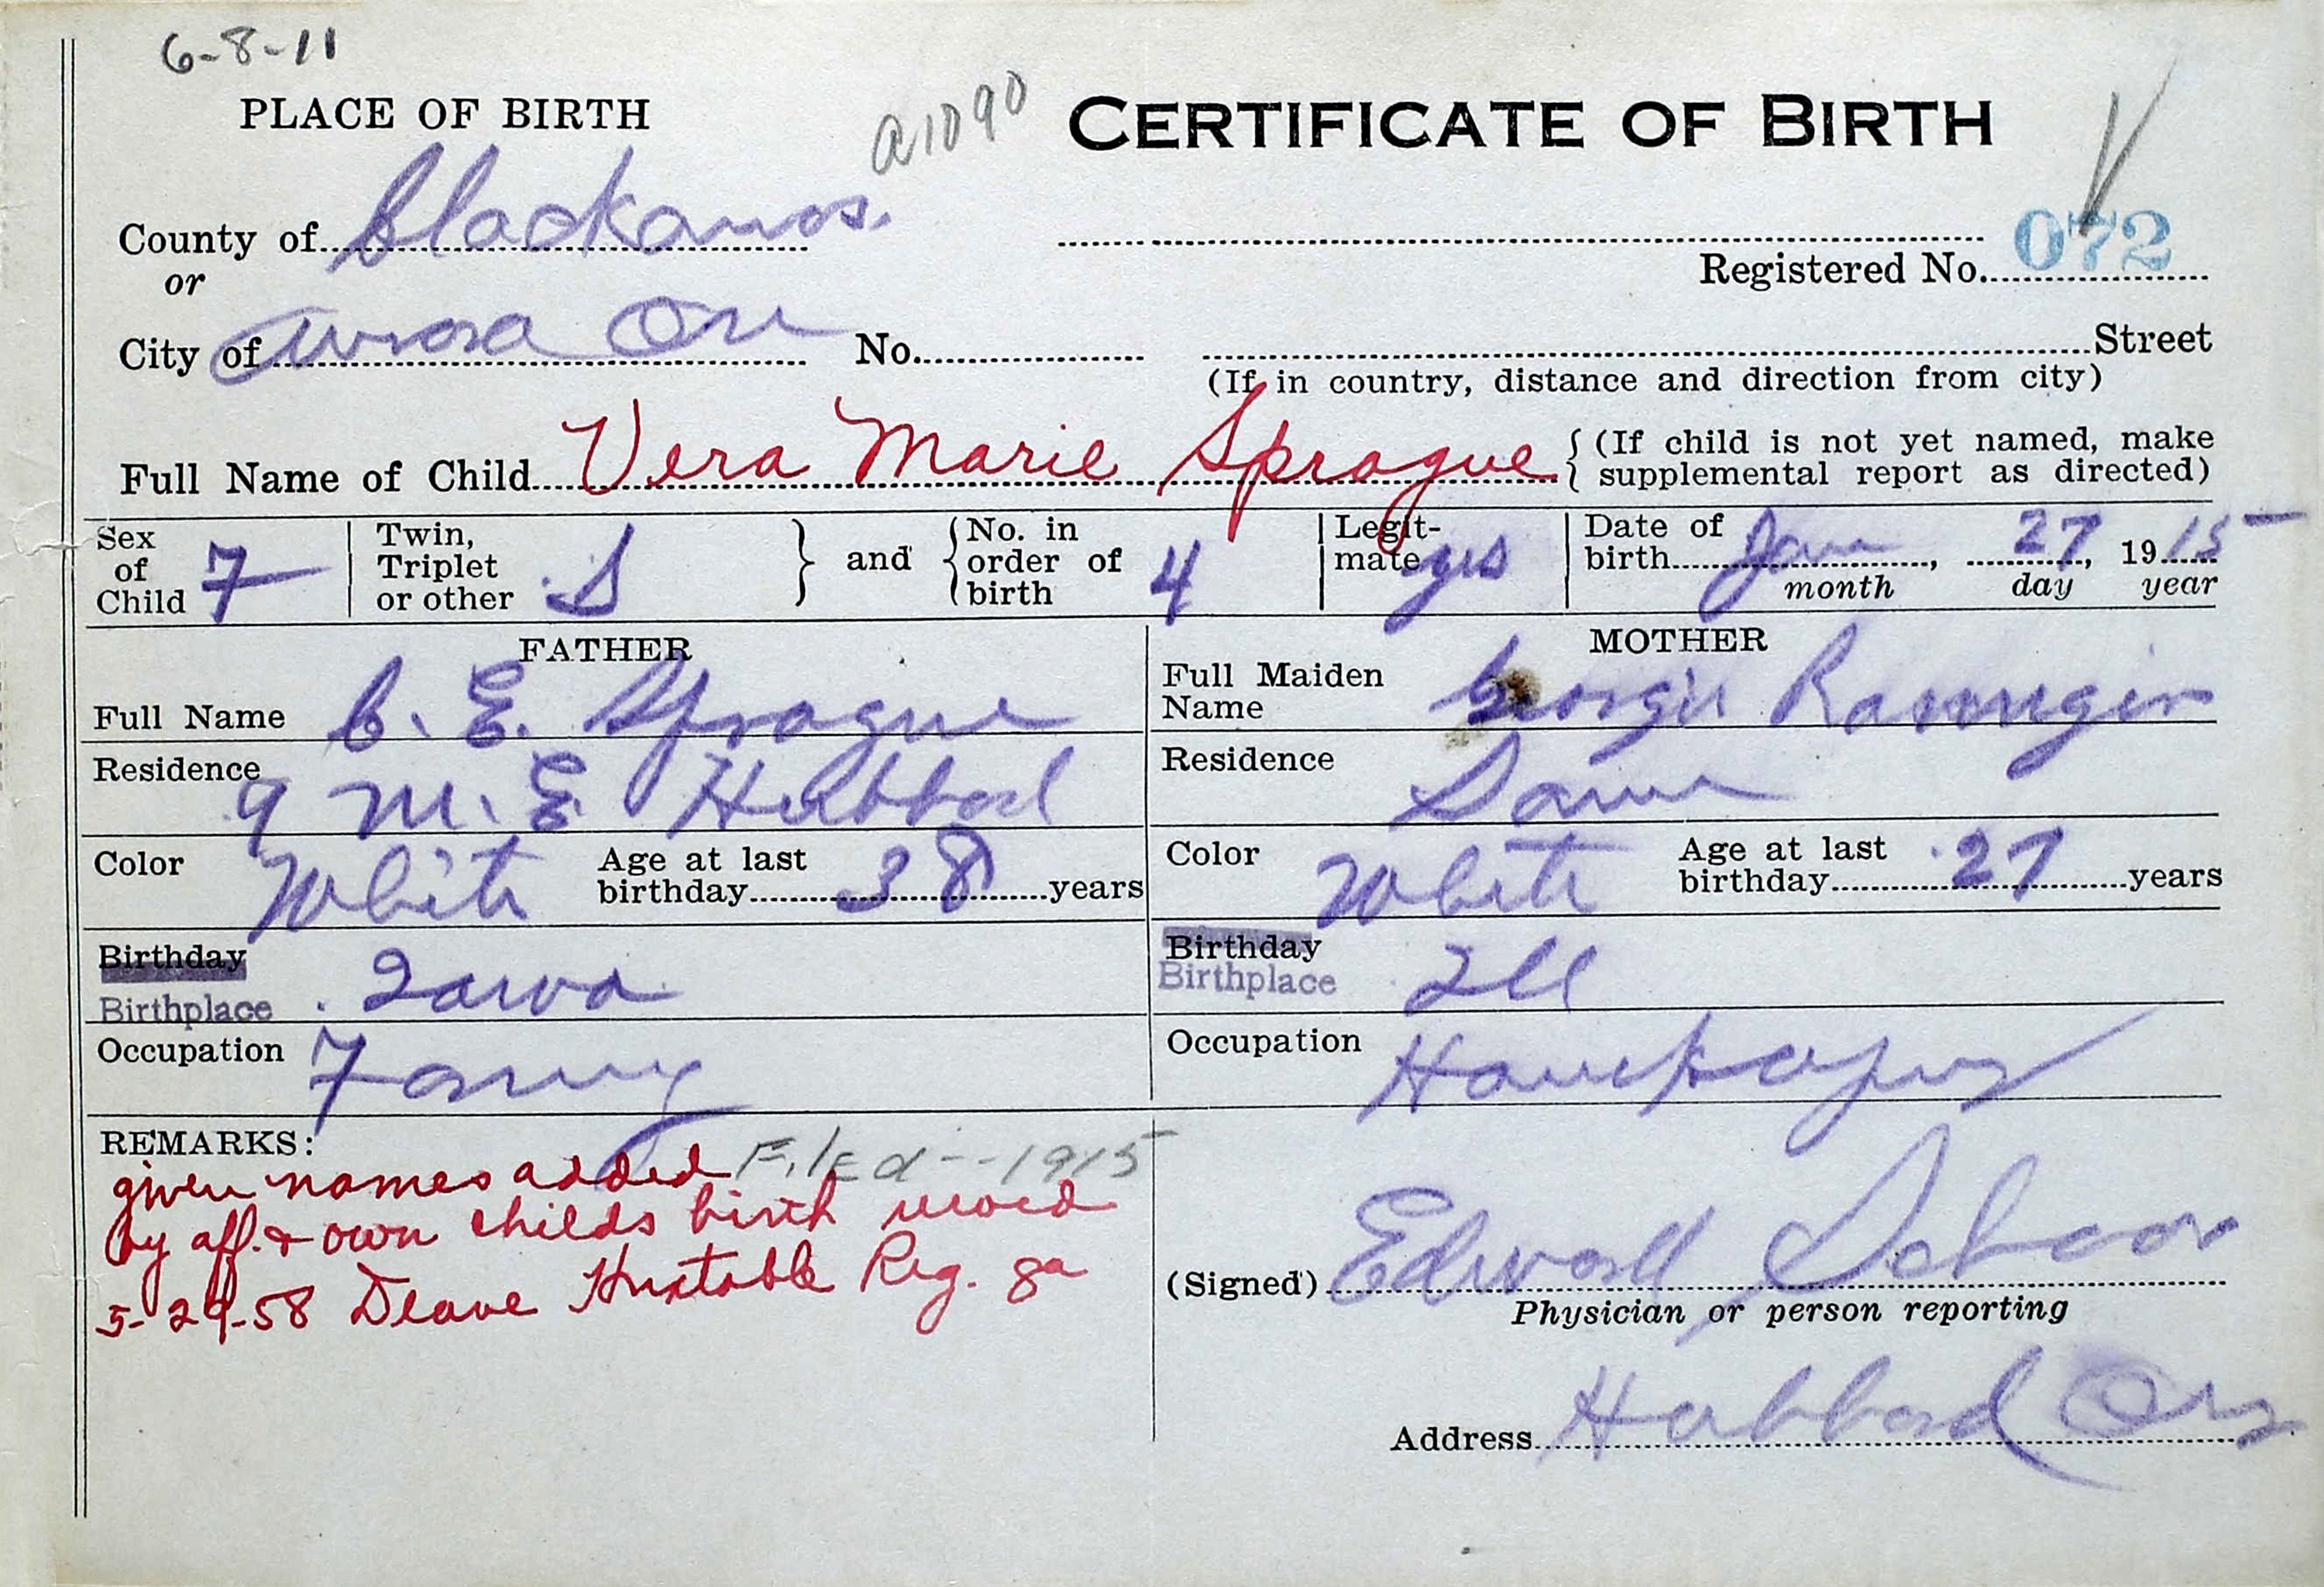 6-8-11
PLACE OF BIRTH
a1090
CERTIFICATE OF BIRTH
County of Clackamas.
072
Registered No.
or
City of Aurora Ore No. Street
(If in country, distance and direction from city)
Full Name of Child Vera Marie Sprague { (If child is not yet named, make
supplemental report as directed)
Sex of Child F
Twin, Triplet or other S } and { No. in order of birth 4
Legit-mate yes
Date of birth Jan, 27, 1915
month day year
FATHER
Full Name C. E. Sprague
Residence 9 M. E. Hubbard
Color White Age at last birthday 38 years
Birthday
Birthplace Iowa
Occupation Farmg
MOTHER
Full Maiden Name Georgie
Residence Same
Color White Age at last birthday 27 years
Birthday
Birthplace Ill
Occupation
REMARKS:
Filed--1915
given names added
by aff. & own childs birth record
5-29-58 Deane Huxtable Reg. ga
(Signed)
Physician or person reporting
Address Hubbard Ore